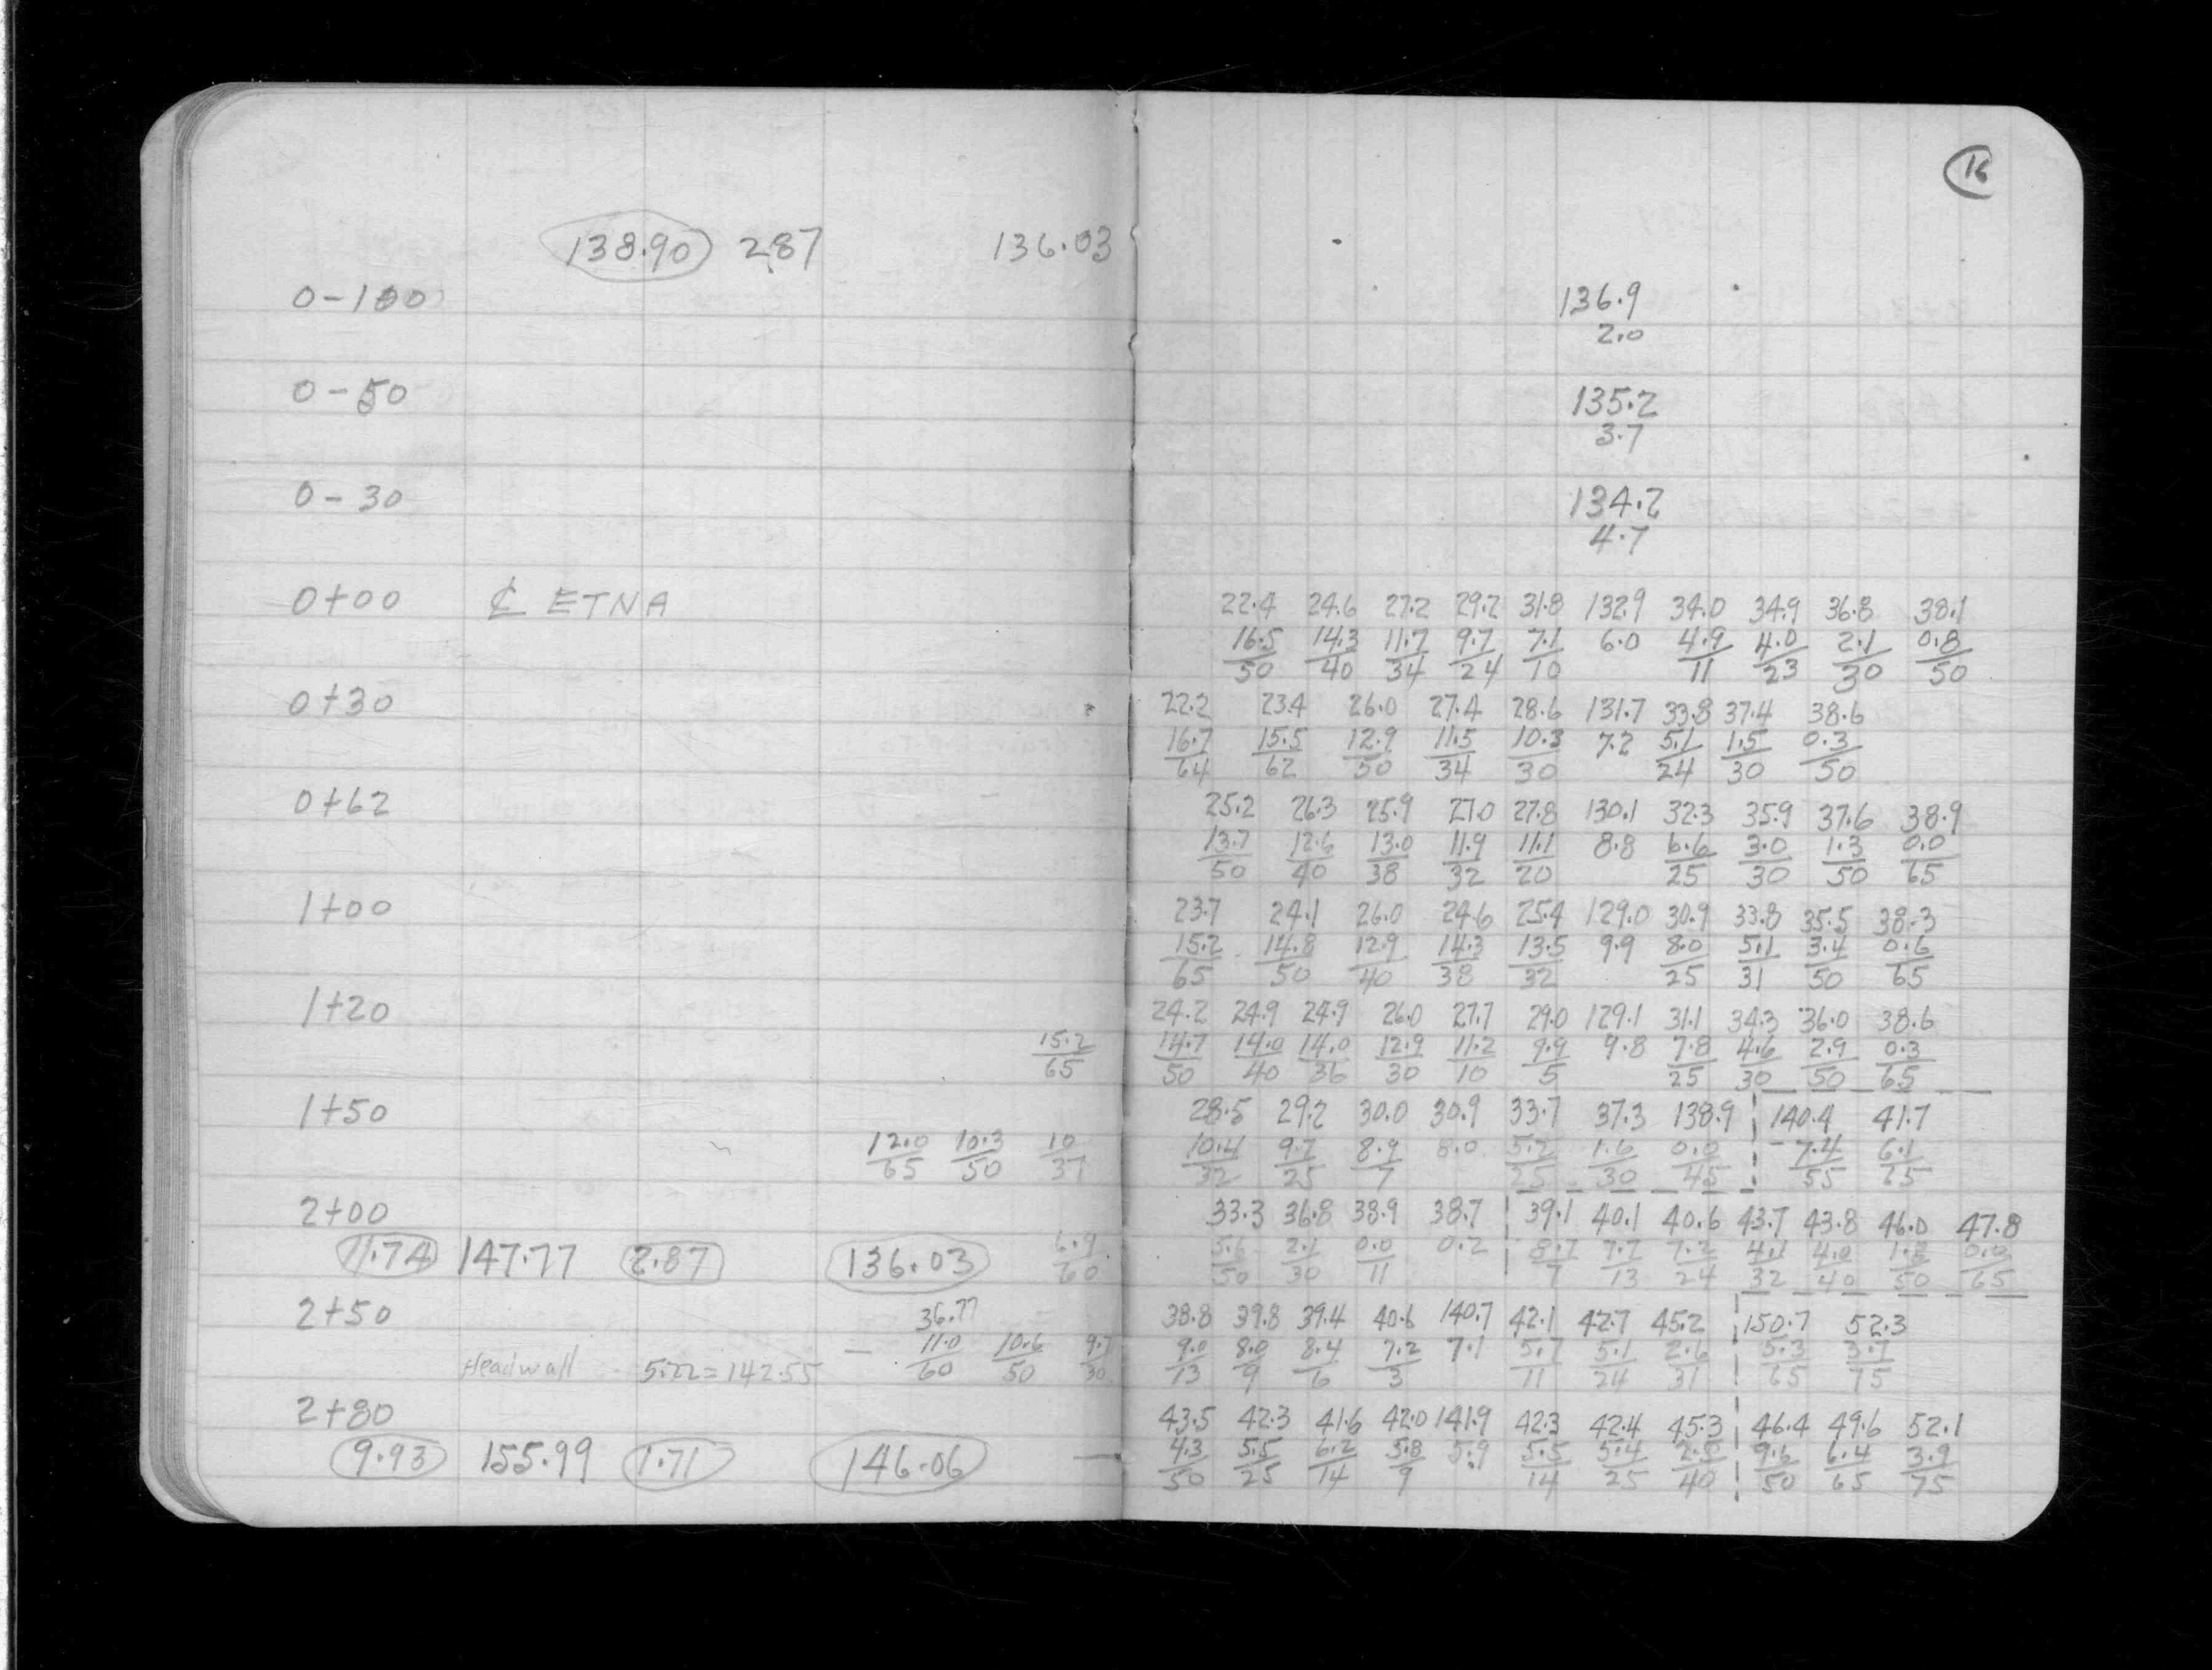 16
138.90 2.87 136.03
0-100 136.9
2.0
0-50 135.2
3.7
0-30 134.2
4.7
0+00 ℄ ETNA 22.4 24.6 27.2 29.2 31.8 132.9 34.0 34.9 36.8 38.1
16.5/50 14.3/40 11.7/34 9.7/24 7.1/10 6.0 4.9/11 4.0/23 2.1/30 0.8/50
0+30 22.2 23.4 26.0 27.4 28.6 131.7 33.8 37.4 38.6
16.7/64 15.5/62 12.9/50 11.5/34 10.3/30 7.2 5.1/24 1.5/30 0.3/50
0+62 25.2 26.3 25.9 27.0 27.8 130.1 32.3 35.9 37.6 38.9
13.7/50 12.6/40 13.0/38 11.9/32 11.1/20 8.8 6.6/25 3.0/30 1.3/50 0.0/65
1+00 23.7 24.1 26.0 24.6 25.4 129.0 30.9 33.8 35.5 38.3
15.2/65 14.8/50 12.9/40 14.3/38 13.5/32 9.9 8.0/25 5.1/31 3.4/50 0.6/65
1+20 24.2 24.9 24.9 26.0 27.7 29.0 129.1 31.1 34.3 36.0 38.6
15.2/65 14.7/50 14.0/40 14.0/36 12.9/30 11.2/10 9.9/5 9.8 7.8/25 4.6/30 2.9/50 0.3/65
1+50 28.5 29.2 30.0 30.9 33.7 37.3 138.9 140.4 41.7
12.0/65 10.3/50 10/37 10.4/32 9.7/25 8.9/7 8.0 5.2/25 1.6/30 0.0/45 7.4/55 6.1/65
2+00 33.3 36.8 38.9 38.7 39.1 40.1 40.6 43.7 43.8 46.0 47.8
11.74 147.77 2.87 136.03 6.9/60 5.6/50 2.1/30 0.0/11 0.2 8.7/7 7.7/13 7.2/24 4.1/32 4.0/40 1.8/50 0.0/65
2+50 36.77 38.8 39.8 39.4 40.6 140.7 42.1 42.7 45.2 150.7 52.3
Headwall 5.22=142.55 11.0/60 10.6/50 9.7/30 9.0/13 8.0/9 8.4/6 7.2/3 7.1 5.7/11 5.1/24 2.6/31 5.3/65 3.7/75
2+80 43.5 42.3 41.6 42.0 141.9 42.3 42.4 45.3 46.4 49.6 52.1
9.93 155.99 1.71 146.06 4.3/50 5.5/25 6.2/14 5.8/9 5.9 5.5/14 5.4/25 2.5/40 9.6/50 6.4/65 3.9/75